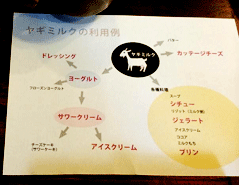 ヤギミルクの利用例
バター
ヤギミルク
カッテージチーズ
ドレッシング
ヨーグルト
フローズンヨーグルト
各種料理
スープ
シチュー
リゾット（ミルク粥）
ジェラート
アイスクリーム
ココア
ミルクもち
プリン
サワークリーム
チーズケーキ
（サワーケーキ）
アイスクリーム